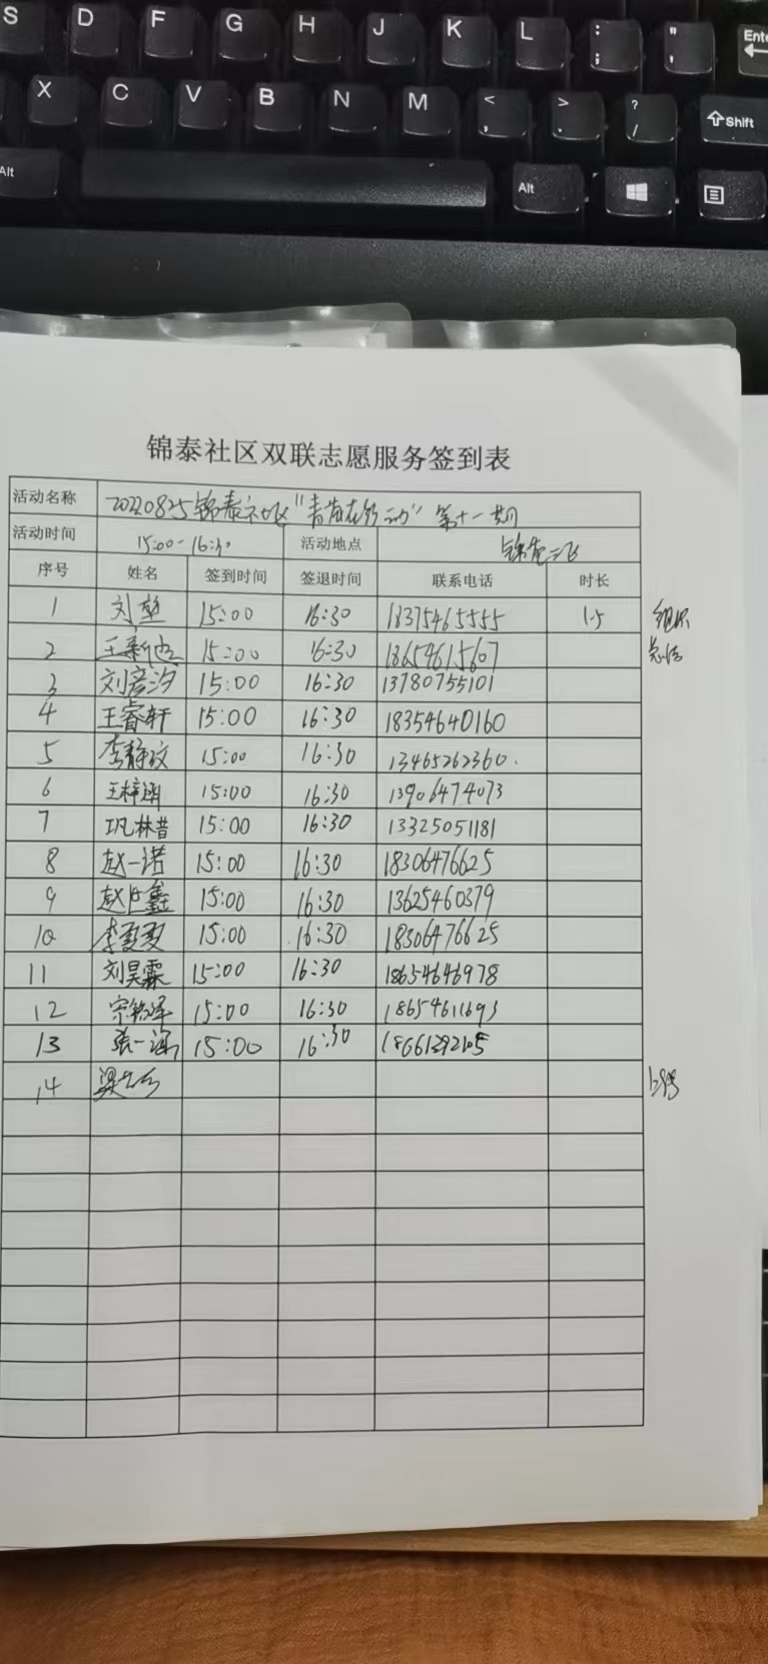 S D F G H J K L : ; " ' Ente
X C V B N M < , > . ? / Shift
Alt Alt
锦泰社区双联志愿服务签到表
活动名称 20220825锦泰社区"青苗在行动"第十一期
活动时间 15:00-16:30 活动地点 锦泰
序号 姓名 签到时间 签退时间 联系电话 时长
1 刘 15:00 16:30 18375465555 1.5 组织
2 王新 15:00 16:30 18654615607 总结
3 刘彦汐 15:00 16:30 13780755101
4 王睿轩 15:00 16:30 18354640160
5 李静玟 15:00 16:30 13465262360
6 王梓涵 15:00 16:30 13906474073
7 巩林昔 15:00 16:30 13325051181
8 赵一诺 15:00 16:30 18306476625
9 赵 鑫 15:00 16:30 13625460379
10 李夏夏 15:00 16:30 18306476625
11 刘昊霖 15:00 16:30 18654646978
12 宗铭泽 15:00 16:30 18654611693
13 张一涵 15:00 16:30 18661392105
14 梁